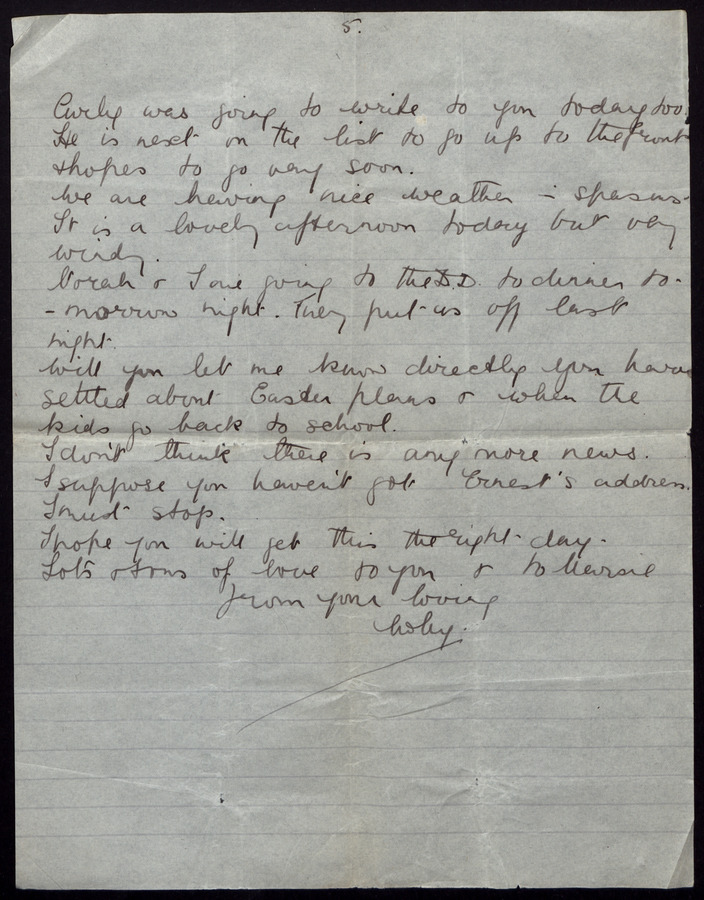 5.
Curly was going to write to you today too.
He is next on the list to go up to the front
& hopes to go very soon.
We are having nice weather – spasms.
It is a lovely afternoon today but very
windy.
Norah & I are going to the D.D. to dinner to-
-morrow night. They put us off last
night.
Will you let me know directly you have
settled about Easter plans & when the
kids go back to school.
I don't think there is any more news.
I suppose you haven't got Ernest's address.
I must stop.
I hope you will get this the right day.
Lots & tons of love to you & to
from your loving